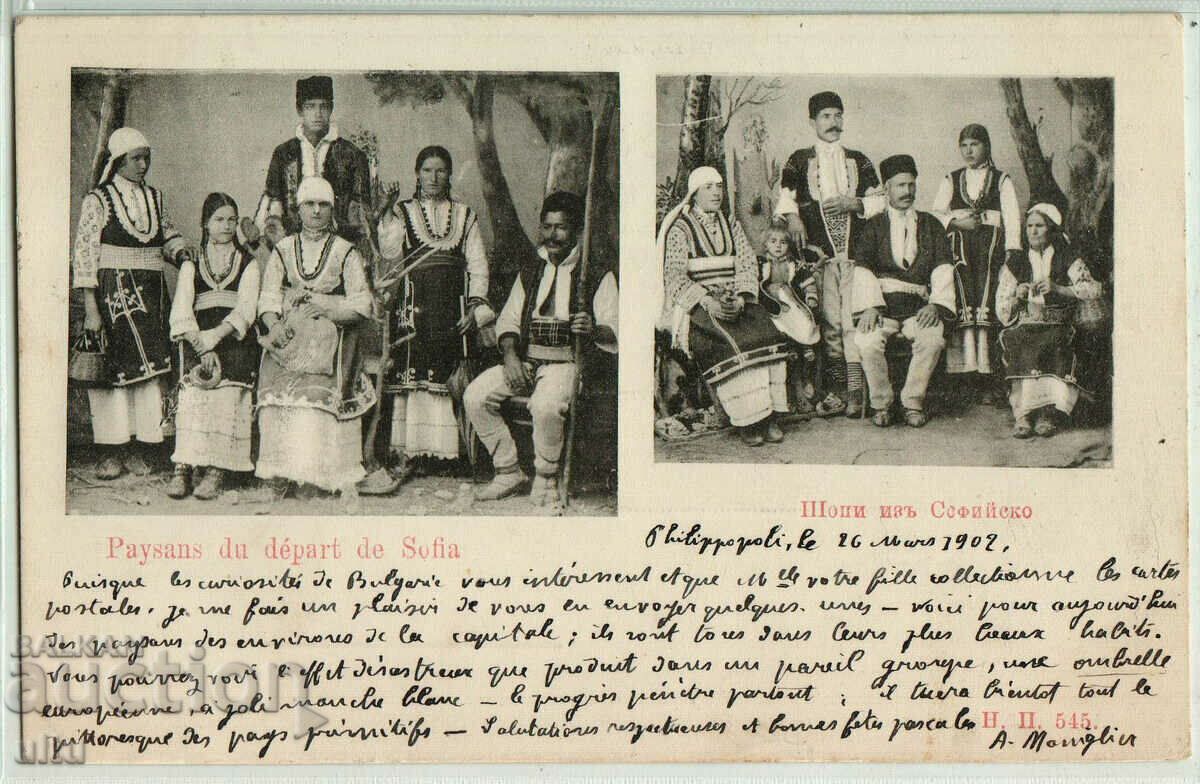 Шопи изъ Софийско
Paysans du départ de Sofia
Philippopoli, le 26 Mars 1902.
Puisque les curiosités de Bulgarie vous intéressent et que Mlle votre fille collectionne les cartes
postales, je me fais un plaisir de vous en envoyer quelques unes – voici pour aujourd'hui
des paysans des environs de la capitale; ils sont tous dans leurs plus beaux habits.
Vous pourrez voir l'effet désastreux que produit dans un pareil groupe, une ombrelle
européenne, à joli manche blanc – le progrès pénètre partout; il tuera bientôt tout le
pittoresque des pays primitifs – Salutations respectueuses et bonnes fêtes pascales
Н. П. 545.
A.
BALKAN
auction
ultu